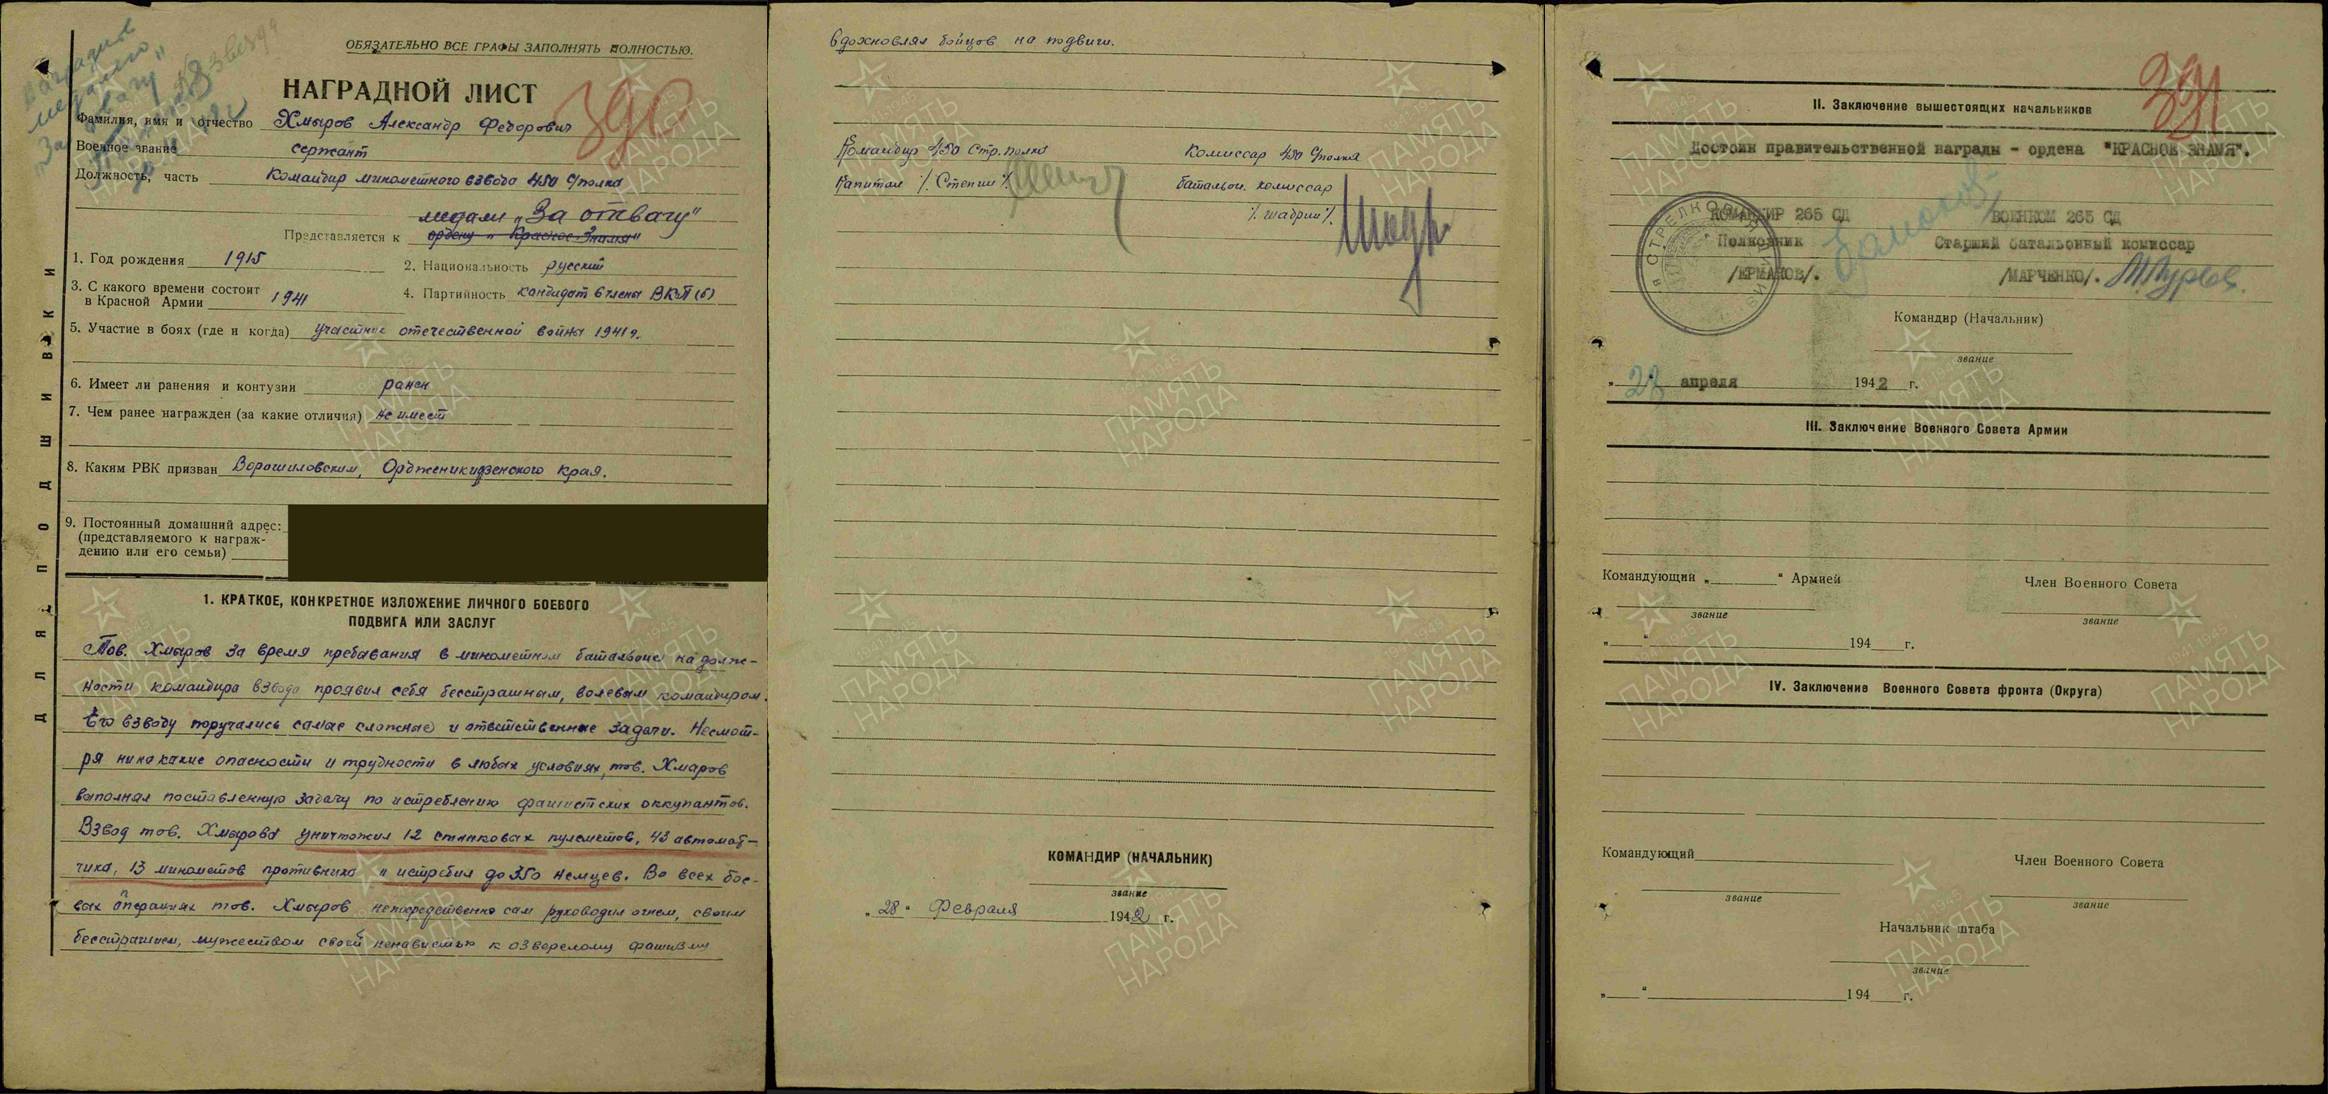 ОБЯЗАТЕЛЬНО ВСЕ ГРАФЫ ЗАПОЛНЯТЬ ПОЛНОСТЬЮ.
НАГРАДНОЙ ЛИСТ
390
Фамилия, имя и отчество Хмыров Александр Федорович
Военное звание сержант
Должность, часть Командир минометного взвода 450 с/полка
медали „За отвагу"
Представляется к ордену „Красное Знамя"
1. Год рождения 1915
2. Национальность русский
3. С какого времени состоит
в Красной Армии 1941
4. Партийность кандидат в члены ВКП(б)
5. Участие в боях (где и когда) участник отечественной войны 1941 г.
6. Имеет ли ранения и контузии ранен
7. Чем ранее награжден (за какие отличия) не имеет
8. Каким РВК призван Ворошиловским, Орджоникидзенского края.
9. Постоянный домашний адрес:
(представляемого к награж-
дению или его семьи)
ДЛЯ ПОДШИВКИ
1. КРАТКОЕ, КОНКРЕТНОЕ ИЗЛОЖЕНИЕ ЛИЧНОГО БОЕВОГО
ПОДВИГА ИЛИ ЗАСЛУГ
Тов. Хмыров за время пребывания в минометном батальоне на долж-
ности командира взвода проявил себя бесстрашным, волевым командиром.
Его взводу поручались самые сложные и ответственные задачи. Несмот-
ря ни на какие опасности и трудности в любых условиях, тов. Хмыров
выполнял поставленную задачу по истреблению фашистских оккупантов.
Взвод тов. Хмырова уничтожил 12 станковых пулеметов, 43 автомат-
чика, 13 минометов противника и истребил до 350 немцев. Во всех бое-
вых операциях тов. Хмыров непосредственно сам руководил огнем, своим
бесстрашием, мужеством своей ненавистью к озверелому фашизму
вдохновлял бойцов на подвиги.
Командир 450 Стр. полка
Капитан /. Степин /.
Комиссар 450 с/полка
батальон. комиссар
/. Шабрин /.
КОМАНДИР (НАЧАЛЬНИК)
звание
„28" Февраля 1942 г.
391
II. Заключение вышестоящих начальников
Достоин правительственной награды - ордена "КРАСНОЕ ЗНАМЯ".
КОМАНДИР 265 СД
Полковник
/ЕРМАКОВ/.
ВОЕНКОМ 265 СД
Старший батальонный комиссар
/МАРЧЕНКО/.
Командир (Начальник)
звание
„28" апреля 1942 г.
III. Заключение Военного Совета Армии
Командующий „ " Армией
звание
Член Военного Совета
звание
„ " 194 г.
IV. Заключение Военного Совета фронта (Округа)
Командующий
звание
Член Военного Совета
звание
Начальник штаба
звание
„ " 194 г.
ПАМЯТЬ НАРОДА
1941-1945